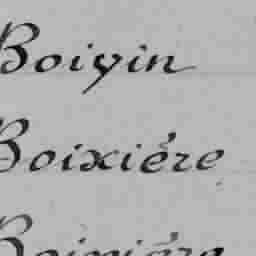 Boiyin
Boixiére